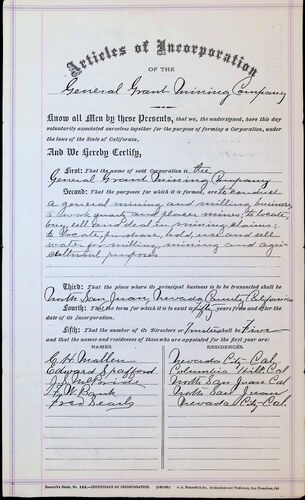 Articles of Incorporation
OF THE
General Grant Mining Company
Know all Men by these Presents, that we, the undersigned, have this day
voluntarily associated ourselves together for the purpose of forming a Corporation, under
the laws of the State of California,
And We Hereby Certify,
First: That the name of said Corporation is the
General Grant Mining Company
Second: That the purposes for which it is formed, are to conduct
a general mining and milling business,
to work quartz and placer mines; to locate,
buy, sell and deal in mining claims;
to locate, purchase, hold, use and sell
water for milling, mining and agri-
cultural purposes
Third: That the place where its principal business is to be transacted shall be
North San Juan, Nevada County, California
Fourth: That the term for which it is to exist is Fifty years from and after the
date of its incorporation.
Fifth: That the number of its Directors or Trustees shall be Five
and that the names and residences of those who are appointed for the first year are:
NAMES. RESIDENCES.
C. H. Mallen Nevada City Cal.
Edward Spafford Columbia Hill Cal
McBride North San Juan Cal
W. Bank North San Juan
Fred Searls Nevada City Cal.